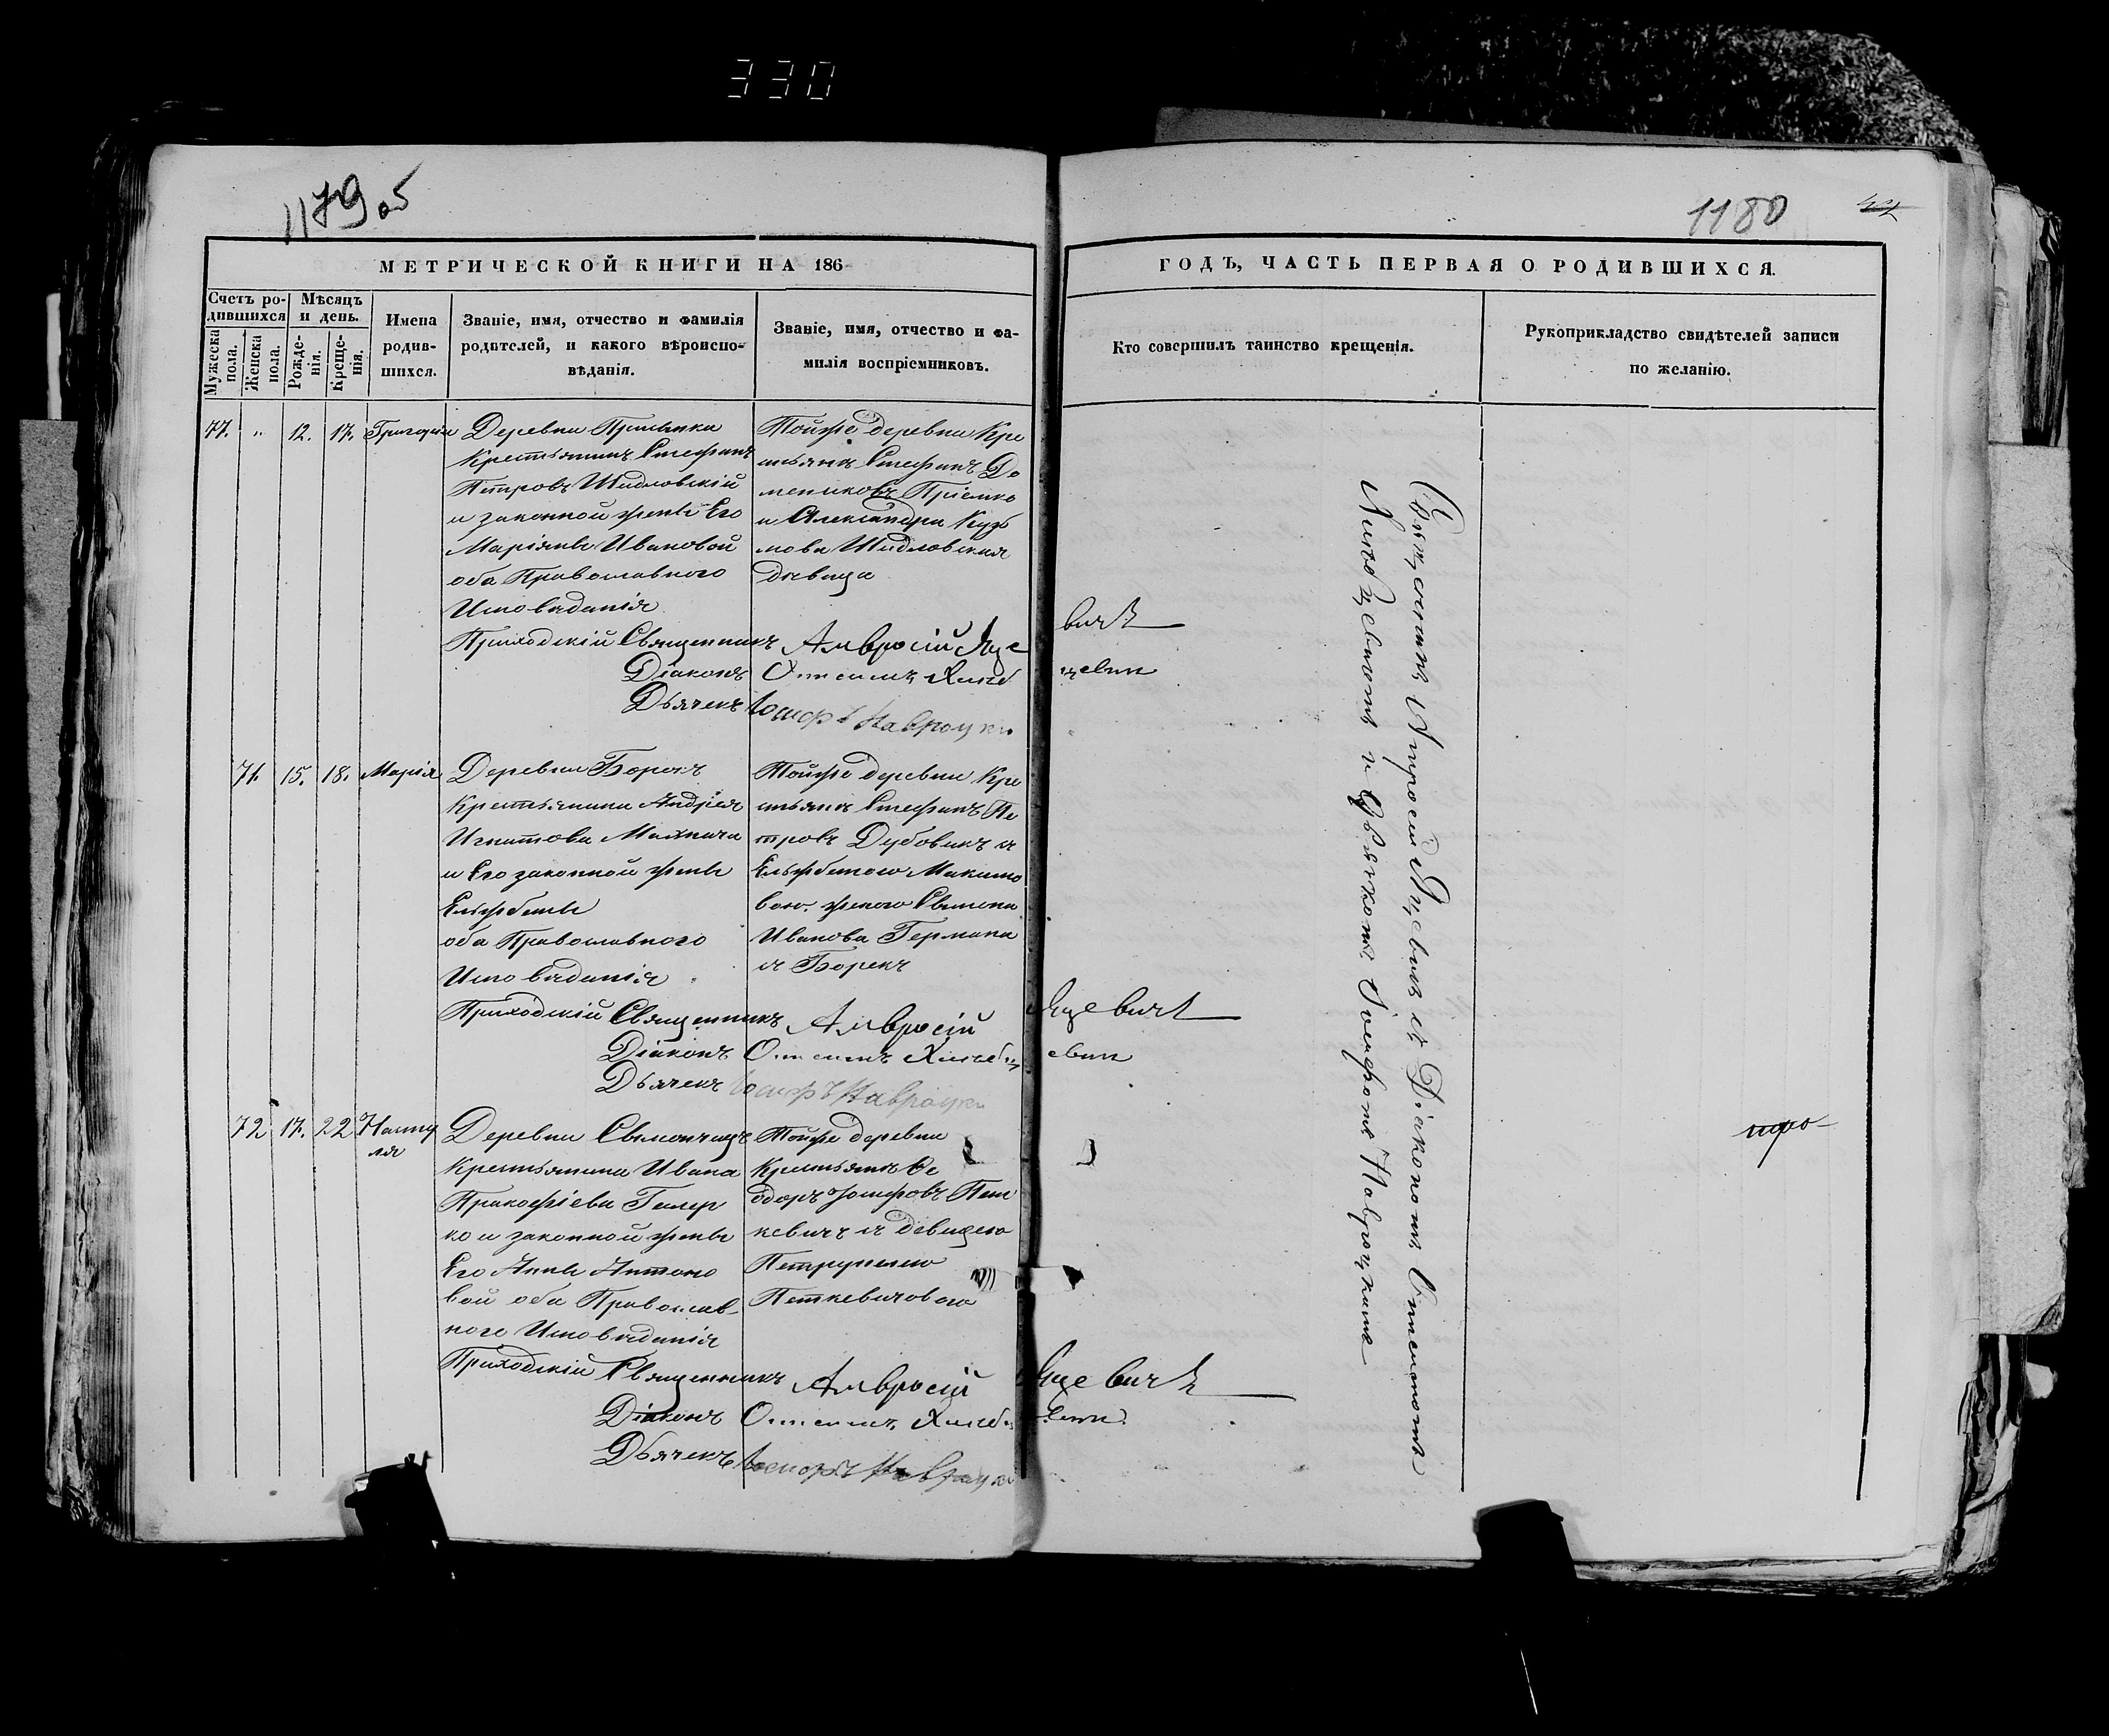 330
1179 об
1180
МЕТРИЧЕСКОЙ КНИГИ НА 186
ГОДЪ, ЧАСТЬ ПЕРВАЯ О РОДИВШИХСЯ.
Счетъ ро-
дившихся
Мужеска пола.
Женска пола.
Мѣсяцъ
и день.
Рожде-
нія.
Креще-
нія.
Имена
родив-
шихся.
Званіе, имя, отчество и фамилія
родителей, и какого вѣроиспо-
вѣданія.
Званіе, имя, отчество и фа-
милія воспріемниковъ.
Кто совершилъ таинство крещенія.
Рукоприкладство свидѣтелей записи
по желанію.
77. " 12. 17. Григорій
Деревни
Крестьянинъ Стефанъ
Петровъ Шидловскій
и законной жены Его
Маріяны Ивановой
оба Православного
Исповѣданія
Тойже деревни Кре
стьянъ Стефанъ До
мениковъ
и Александра Кузь
мова Шидловская
дѣвица
Приходскій Священникъ Амвросій Яце
вичъ
Діаконъ Онисимъ Хлеб
цевич
Дьячекъ Іосифъ Навроцки
71. 15. 18. Марія
Деревни Борокъ
Крестьянина Андрея
Игнатова Махнача
и Его законной жены
Ельжбеты
оба Православного
Исповѣданія
Тойже деревни Кре
стьянъ Стефанъ Пе
тровъ Дубовикъ и
Ельжбетою Макимо
вою. женою Сымона
Иванова Германа
и Борекъ
Приходскій Священникъ Амвросій Яцевичъ
Діаконъ Онисимъ Хлебцевич
Дьячекъ Іосифъ Навроцки
72 17. 22 Наста
лія
Деревни
Крестьянина Ивана
Пракофіева Гелер
ко и законной жены
Его Анны Антоно
вой оба Православ-
ного Исповѣданія
Тойже деревни
Крестьянъ Ѳе
доръ Іосифовъ Пет
кевичъ и девицею
Петрунелею
Петкевичовою
Приходскій Священникъ Амвросій Яцевичъ
Діаконъ Онисимъ Хлебцевич
Дьячекъ Іосифъ Навроцки
Священникъ Амвросій Яцевичъ съ Діакономъ Онисимомъ
Хлебцевичемъ и Дьячкомъ Іосифомъ Навроцкимъ